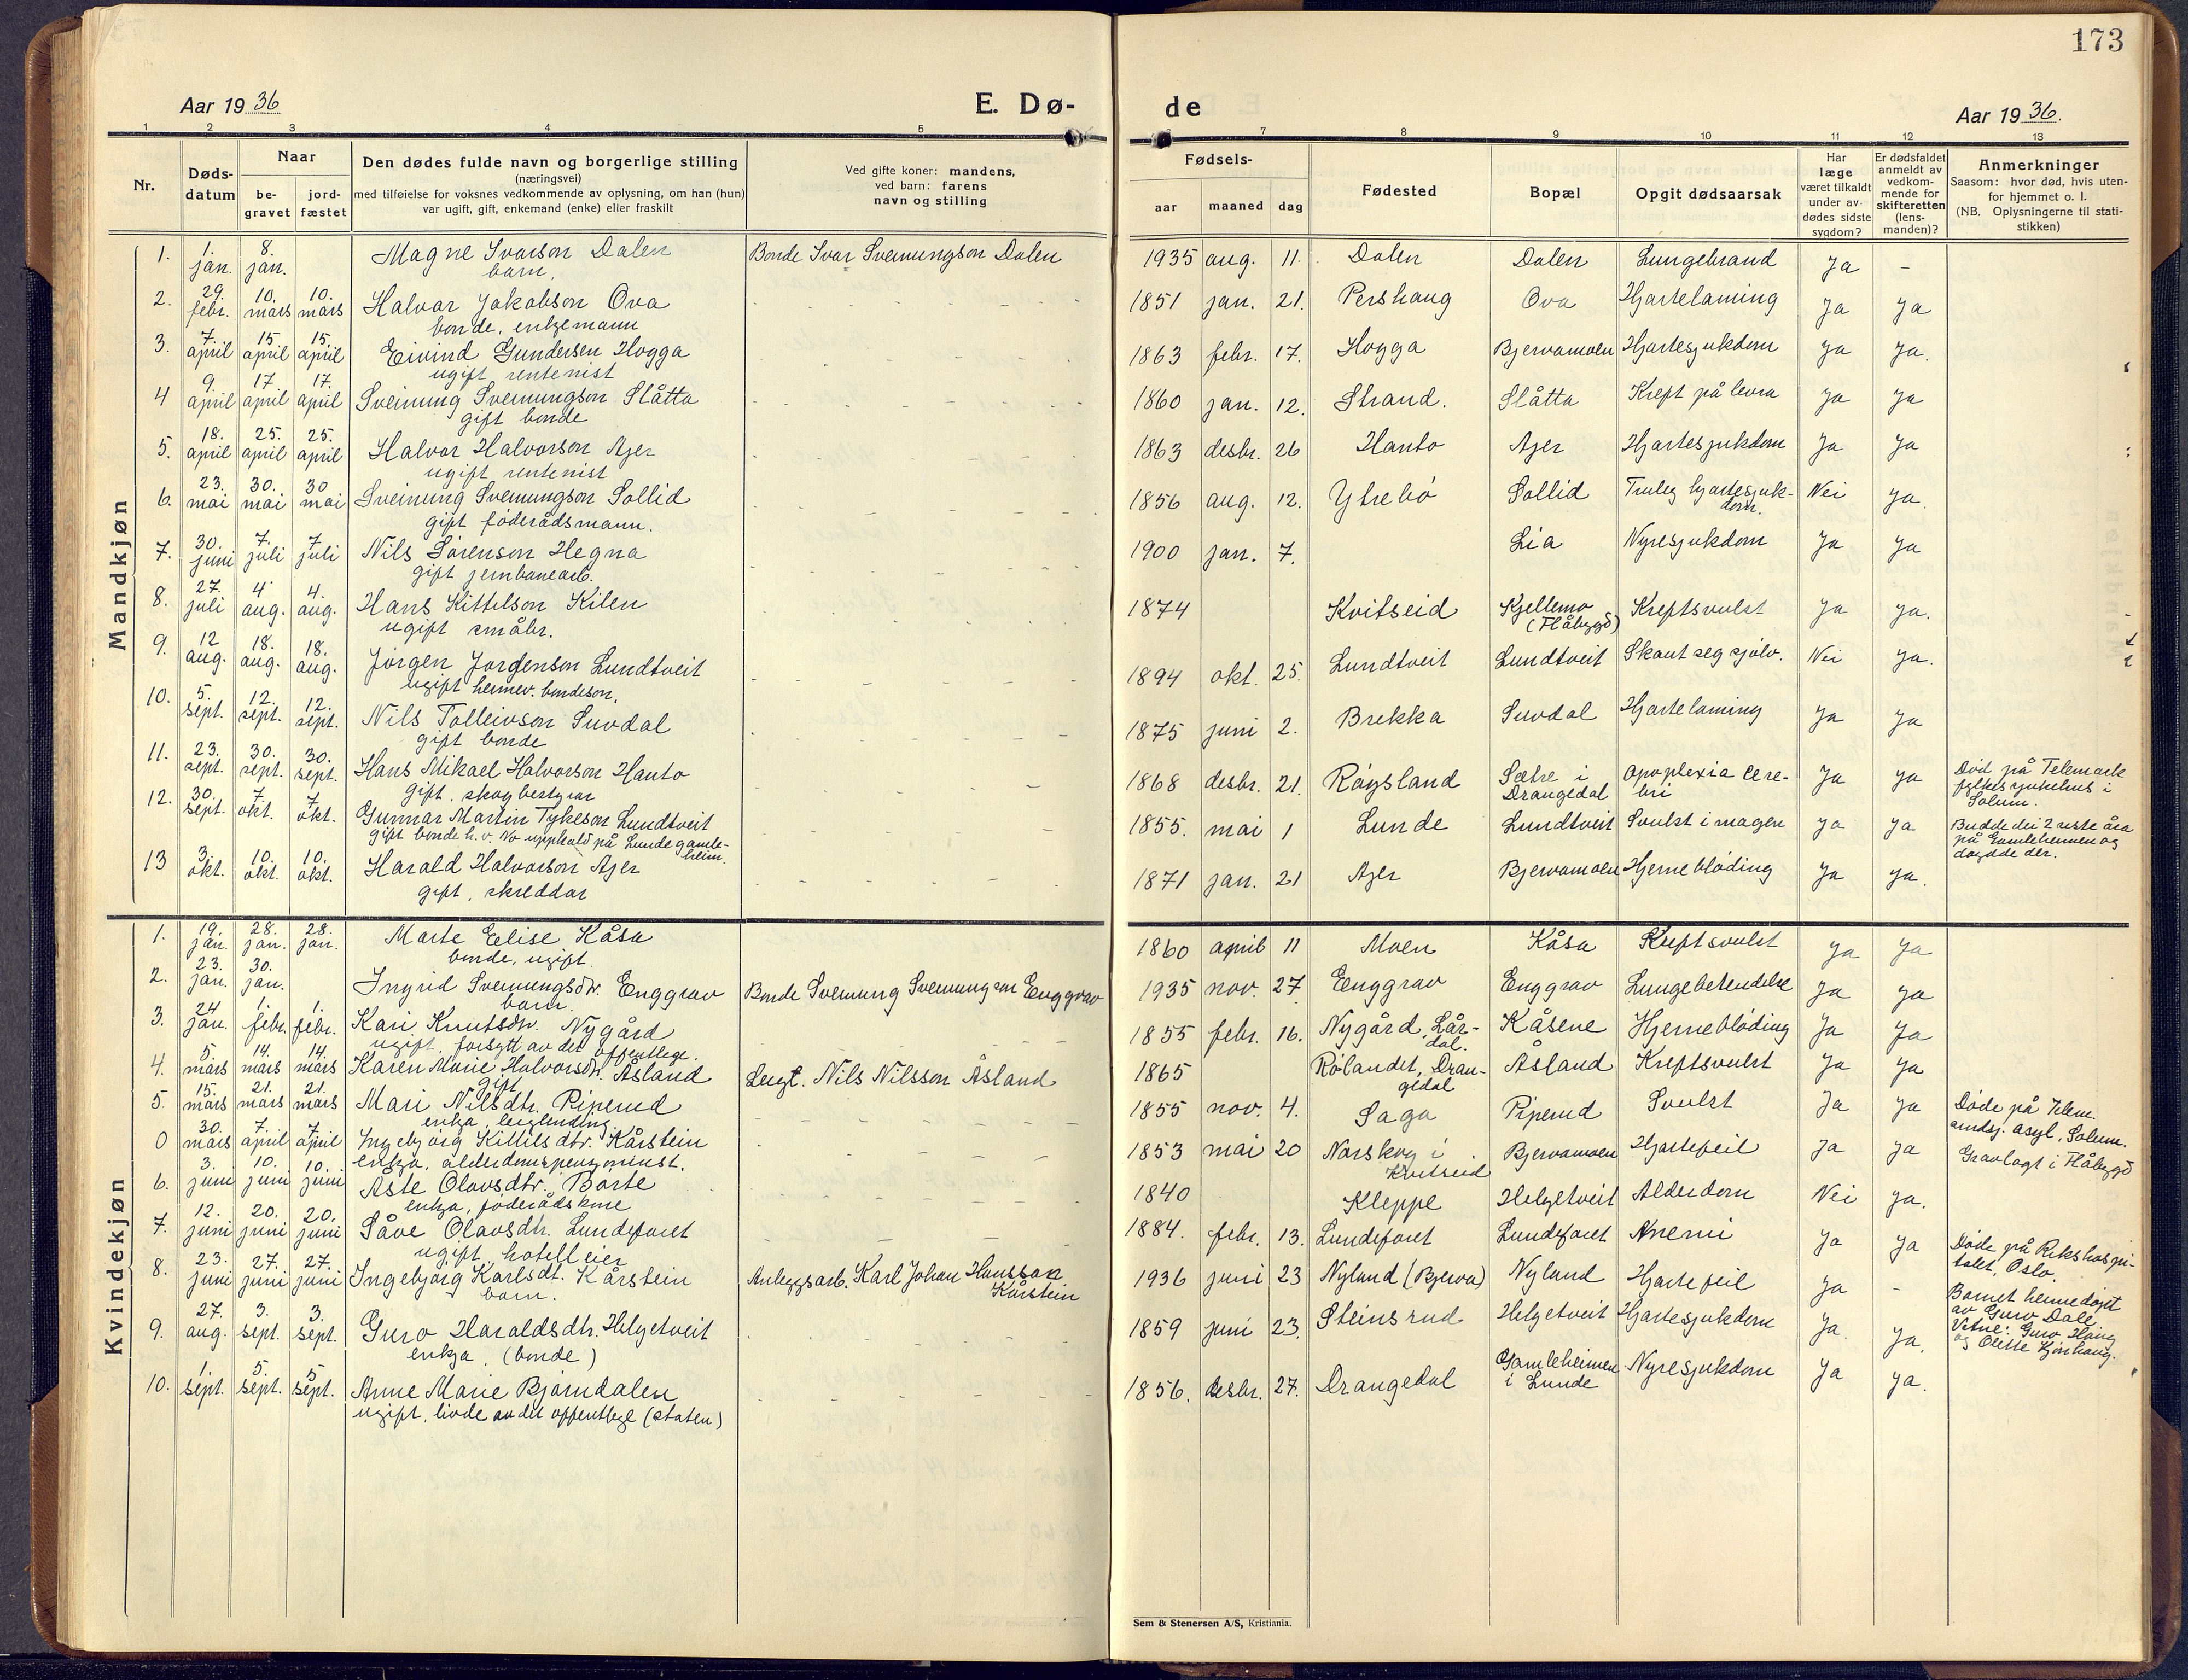 173
Aar 1936
E. Dø-
de
Aar 1936.
1 2 3 4 5
7 8 9 10 11 12 13
Nr.
Døds-
datum
Naar
be-
gravet
jord-
fæstet
Den dødes fulde navn og borgerlige stilling
(næringsvei)
med tilføielse for voksnes vedkommende av oplysning, om han (hun)
var ugift, gift, enkemand (enke) eller fraskilt
Ved gifte koner: mandens,
ved barn: farens
navn og stilling
Fødsels-
aar maaned dag
Fødested
Bopæl
Opgit dødsaarsak
Har
læge
været tilkaldt
under av-
dødes sidste
sygdom?
Er dødsfaldet
anmeldt av
vedkom-
mende for
skifteretten
(lens-
manden)?
Anmerkninger
Saasom: hvor død, hvis uten-
for hjemmet o. l.
(NB. Oplysningerne til stati-
stikken)
Mandkjøn
1. 1. jan. 8. jan. Magne Ivarson Dalen Bonde Ivar Sveinungson Dalen 1935 aug. 11. Dalen Dalen Lungebrand Ja –
barn.
2. 29. febr. 10. mars 10. mars Halvor Jakobson Ova 1851 jan. 21. Pershaug Ova Hjartelaming Ja Ja
bonde, enkjemann
3. 7. april 15. april 15. april Eivind Gundersen Hogga 1863 febr. 17. Hogga Bjervamoen Hjartesjukdom Ja Ja.
ugift rentenist
4 9. april 17 april 17. april Sveinung Sveinungson Slåtta 1860 jan. 12. Strand. Slåtta Kreft på levra Ja Ja
gift bonde
5. 18. april 25. april 25. april Halvor Halvorson Ajer 1863 desbr. 26 Hanto Ajer Hjartesjukdom Ja Ja
ugift rentenist
6. 23. mai 30. mai 30 mai Sveinung Sveinungson Sollid 1856 aug. 12. Ytrebø Sollid Truleg hjartesjuk-
dom. Nei Ja.
gift føderådsmann.
7. 30. juni 7. juli 7 juli Nils Sørenson Hegna 1900 jan. 7. Lia Nyresjukdom Ja Ja
gift jernbanearb.
8. 27. juli 4 aug. 4. aug. Hans Kittelson Kilen 1874 Kvitseid Kjellemo
(Flåbygd) Kreftsvulst Ja Ja.
ugift småbr.
9. 12 aug. 18. aug. 18. aug. Jørgen Jørgenson Lundtveit 1894 okt. 25. Lundtveit Lundtveit Skaut seg sjølv. Nei Ja.
ugift heimev. bondeson.
10. 5. sept. 12. sept. 12. sept. Nils Tolleivson Suvdal 1875 juni 2. Brekka Suvdal Hjartelaming Ja Ja
gift bonde
11. 23. sept. 30. sept. 30. sept. Hans Mikael Halvorson Hanto 1868 desbr. 21. Røysland Sætre i
Drangedal Apoplexia cere-
bri Ja Ja Død på Telemark
fylkessjukehus i
Solum.
gift. skogbestyrar
12. 30. sept. 7. okt. 7 okt. Gunnar Martin Tykeson Lundtveit 1855. mai 1 Lunde Lundtveit Svulst i magen Ja Ja Budde dei 2 siste åra
på Gamleheimen og
døydde der.
gift bonde h.v. No upphald på Lunde gamle-
heim.
13 3. okt. 10. okt. 10. okt. Harald Halvorson Ajer 1871 jan. 21 Ajer Bjervamoen Hjernebløding Ja Ja.
gift, skreddar
Kvindekjøn
1. 19. jan. 28. jan. 28. jan. Marte Elise Kåsa 1860 april 11 Moen Kåsa Kreftsvulst Ja Ja
bonde, ugift.
2. 23. jan. 30. jan. Ingrid Sveinungsdtr. Enggrav Bonde Sveinung Sveinungson Enggrav 1935 nov. 27 Enggrav Enggrav Lungebetendelse Ja Ja
barn.
3. 24 jan. 1. febr. 1. febr. Kari Knutsdtr. Nygård 1855 febr. 16. Nygård, Lår-
dal. Kåsene Hjernebløding Ja Ja
ugift, forsytt av det offentlege.
4. 5. mars 14. mars 14. mars Karen Marie Halvorsdtr. Åsland Leigl. Nils Nilsson Åsland 1865 Rølandet, Dran-
gedal Åsland Kreftsvulst Ja Ja
gift
5. 15. mars 21. mars 21. mars Mari Nilsdtr. Piperud 1855 nov. 4. Saga Piperud Svulst Ja Ja Døde på Telem.
amdsj. asyl, Solum.
enkja, leiglending
0 30. mars 7. april 7 april Ingebjørg Kittilsdtr. Kårstein 1853 mai 20 Norskog i
Kvitseid Bjervamoen Hjartefeil Ja Ja Gravlagt i Flåbygd
enkja, alderdomspensjonist.
6. 3. juni 10. juni 10. juni Åste Olavsdtr. Barte 1840 Kleppe Helgetveit Alderdom Nei Ja.
enkja, føderådskone
7. 12. juni 20. juni 20. juni Såve Olavsdtr. Lundefaret 1884. febr. 13. Lundefaret Lundefaret Anemi Ja Ja Døde på Rikshospi-
talet, Oslo.
ugift, hotelleier
8. 23. juni 27. juni 27. juni Ingebjørg Karlsdt. Kårstein Anleggsarb. Karl Johan Hansson
Kårstein 1936 juni 23 Nyland (Bjerva) Nyland Hjartefeil Ja – Barnet heimedøypt
av Guro Dale
Vitne: Guro Haug
og Olette Kjønhaug.
barn.
9. 27. aug. 3. sept. 3. sept. Guro Haraldsdtr. Helgetveit 1859 juni 23. Steinsrud Helgetveit Hjartesjukdom Ja Ja.
enkja, (bonde)
10. 1. sept. 5. sept. 5 sept. Anne Marie Bjørndalen 1856. desbr. 27. Drangedal Gamleheimen
i Lunde Nyresjukdom Ja Ja.
ugift, livde av det offentlege (staten)
Sem & Stenersen A/S, Kristiania.